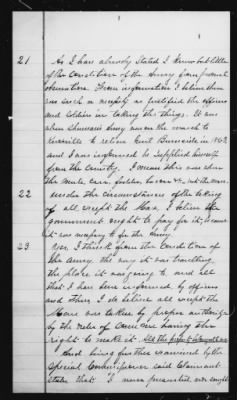 21 As I have already Stated I know but little
of the Condition of the Army from personal
observation. From information I believe there
was such a necessity as justified the officers
and Soldiers in taking the things. It was
when Sherman's Army was on the march to
Knoxville to relieve Genl Burnside in 1863
and I was informed he supplied himself
from the Country. I mean this was when
the Mules Corn, fodder, bacon &c, not the mare
22 under the circumstances of the taking
of all except the Mare. I believe the
Government ought to pay for it, because
it was necessary to for the Army.
23 Yes. I think from the Condition of
the Army, the way it was travelling,
the place it was going to and all
that I have been informed by officers
and others, I do believe all except the
Mare was taken by proper authority
by the rules of Civilized having the
right to make it.
And being further examined by the
Special Commissioner said Claimant
States that "I never presented or sought